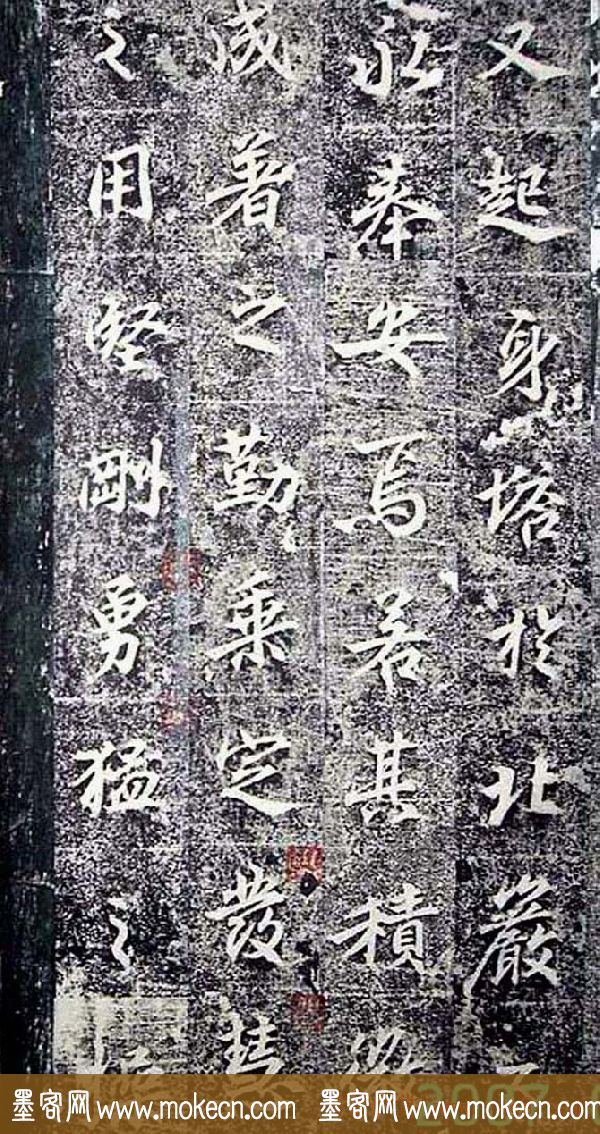 又起身塔於北巖
奉安焉若其積
成著之勤乘定發慧
之用堅剛勇猛之
墨客网 www.mokecn.com 墨客网 www.mokecn.com